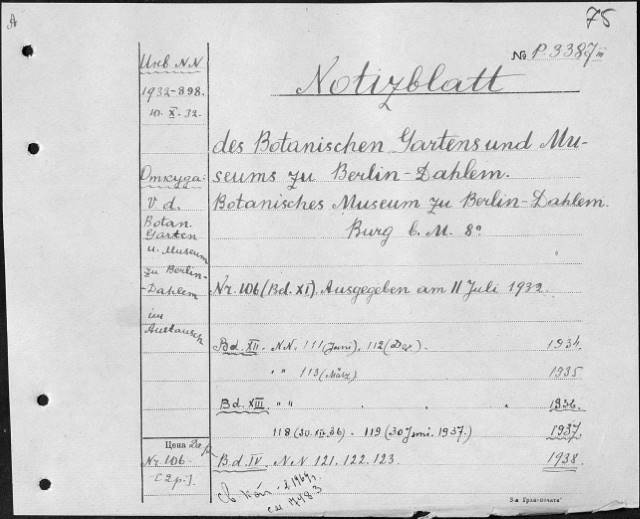 A
75
№ P. 3387 III
Notizblatt
des Botanischen Gartens und Mu-
seums zu Berlin-Dahlem.
Botanisches Museum zu Berlin-Dahlem.
Burg b. M. 8°
Nr. 106 (Bd. XI). Ausgegeben am 11 Juli 1932.
Bd. XII - N.N. 111 (Juni), 112 (Dez). 1934
" " 113 (März) 1935
Bd. XIII " " 1936.
118 (30. III. 36) - 119 (30 Juni. 1937.) 1937
Bd. IV NN 121. 122. 123. 1938
Инв. NN
1932-898.
10. X. 32.
Откуда:
V d.
Botan.
Garten
u. Museum
zu Berlin-
-Dahlem
im
Austausch
Цена
Nr. 106
[2 p.]
1969 г.
см 748.3